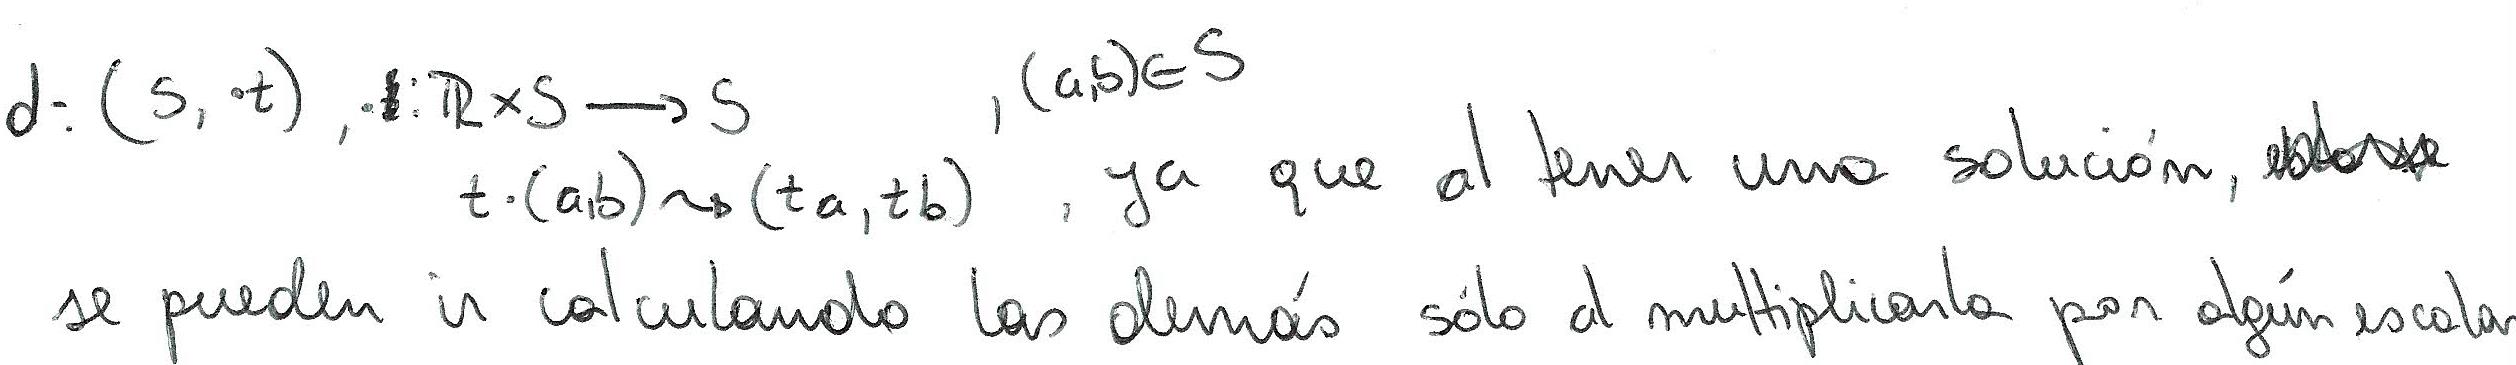 d: (S, ·t) , ·t: ℝ×S ⟶ S , (a,b)∈S
t·(a,b) ⇝ (ta, tb) , ya que al tener una solución,
se pueden ir calculando las demás sólo al multiplicarla por algún escalar